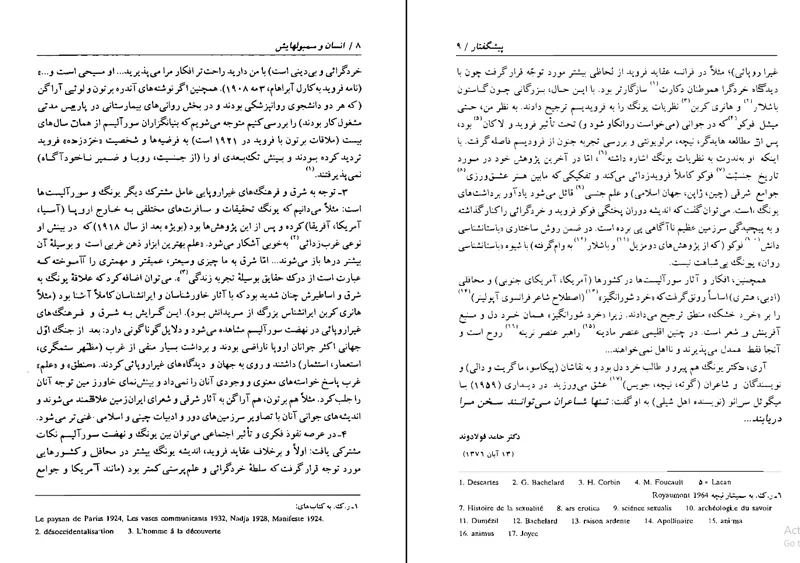 ۸ / انسان و سمبولهایش
خردگرائی و بی‌دینی است) با من دارید راحت‌تر افکار مرا می‌پذیرید... او مسیحی است و...»
(نامه فروید به کارل آبراهام، ۳ مه ۱۹۰۸). همچنین اگر نوشته‌های آندره برتون و لوئی آراگن
(که هر دو دانشجوی روانپزشکی بودند و در بخش روانی‌های بیمارستانی در پاریس مدتی
مشغول کار بودند) را بررسی کنیم متوجه می‌شویم که بنیانگزاران سورآلیسم از همان سال‌های
بیست (ملاقات برتون با فروید در ۱۹۲۱ است) به فرضیه‌ها و شخصیت «خردزده» فروید
تردید کرده بودند و بینش تک‌بعدی او را (از جنسیت، رویا و ضمیر ناخودآگاه)
نمی‌پذیرفتند.(۱)
۳- توجه به شرق و فرهنگ‌های غیراروپایی عامل مشترک دیگر یونگ و سورآلیست‌ها
است: مثلاً می‌دانیم که یونگ تحقیقات و سافرت‌های مختلفی به خارج اروپا (آسیا،
آمریکا، آفریقا) کرده و پس از این پژوهش‌ها بود (بویژه بعد از سال ۱۹۱۸) که در بینش او
نوعی غرب‌زدائی(۲) به‌خوبی آشکار می‌شود. «علم بهترین ابزار ذهن غربی است و بوسیلهٔ آن
بیشتر درها باز می‌شوند... امّا شرق به ما چیزی وسیعتر، عمیقتر و مهمتری را آموخته که
عبارت است از درک حقایق بوسیلهٔ تجربه زندگی»(۳). می‌توان اضافه کرد که علاقهٔ یونگ به
شرق و اساطیرش چنان شدید بود که با آثار خاورشناسان و ایرانشناسان کاملاً آشنا بود (مثلاً
هانری کربن ایرانشناس بزرگ از مریدانش بود). این گرایش به شرق و فرهنگ‌های
غیراروپائی در نهضت سورآلیسم مشاهده می‌شود و دلایل گوناگونی دارد: بعد از جنگ اوّل
جهانی اکثر جوانان اروپا ناراضی بودند و برداشت بسیار منفی از غرب (مظهر ستمگری،
استعمار، استثمار) داشتند و روی به جهان و دیدگاه‌های غیراروپائی کردند. «منطق» و «علم»
غرب پاسخ خواسته‌های معنوی و وجودی آنان را نمی‌داد و بینش‌نمای خاورزمین توجه آنان
را جلب کرد. مثلاً هم برتون، هم آراگن به آثار شرقی و شعرای ایران‌زمین علاقمند می‌شوند و
اندیشه‌های جوانی آنان با تصاویر سرزمین‌های دور و ادبیات چینی و اسلامی غنی‌تر می‌شود.
۴- در عرصه نفوذ فکری و تأثیر اجتماعی می‌توان بین یونگ و نهضت سورآلیسم نکات
مشترکی یافت: اولاً و برخلاف عقاید فروید، اندیشه یونگ بیشتر در محافل و کشورهایی
مورد توجه قرار گرفت که سلطهٔ خردگرائی و علم‌پرستی کمتر بود (مانند آمریکا و جوامع
۱- ر.ک. به کتاب‌های:
Le paysan de Paris 1924, Les vases communicants 1932, Nadja 1928, Manifeste 1924.
2. désoccidentalisation 3. L'homme á la découverte
پیشگفتار / ۹
غیراروپائی)؛ مثلاً در فرانسه عقاید فروید از لحاظی بیشتر مورد توجّه قرار گرفت چون با
دیدگاه خردگرا هموطنان دکارت(۱) سازگارتر بود. با این حال، بزرگانی چون گاستون
باشلار(۲) و هانری کربن(۳) نظریات یونگ را به فرویدیسم ترجیح دادند. به نظر من، حتی
میشل فوکو(۴) که در جوانی (می‌خواست روانکاو شود و) تحت تأثیر فروید و لاکان(۵) بود،
پس از مطالعه هایدگر، نیچه، مرلوپونتی و بررسی تجربه جنون از فرودیسم فاصله گرفت. با
اینکه او به‌ندرت به نظریات یونگ اشاره داشته(۶)، امّا در آخرین پژوهش خود در مورد
تاریخ جنسیّت(۷) فوکو کاملاً فرویدزدائی می‌کند و تفکیکی که مابین هنر عشق‌ورزی(۸)
جوامع شرقی (چین، ژاپن، جهان اسلامی) و علم جنسی(۹) قائل می‌شود یادآور برداشت‌های
یونگ است. می‌توان گفت که اندیشه دوران پختگی فوکو فروید و خردگرائی را کنار گذاشته
و به پیچیدگی سرزمین عظیم ناآگاهی پی برده است. در ضمن روش ساختاری «باستانشناسی
دانش»(۱۰) فوکو (که از پژوهش‌های دومزیل(۱۱) و باشلار(۱۲) به وام گرفته) با شیوه «باستانشناسی
روان» یونگ بی‌شباهت نیست.
همچنین، افکار و آثار سورآلیست‌ها در کشورها (آمریکا، آمریکای جنوبی) و محافلی
(ادبی، هنری) اساساً رونق گرفت که «خرد شورانگیز»(۱۳) (اصطلاح شاعر فرانسوی آپولینر)(۱۴)
را بر «خرد خشک» منطق ترجیح می‌دادند. زیرا «خرد شورانگیز» همان خرد دل و منبع
آفرینش و شعر است. در چنین اقلیمی عنصر مادینه(۱۵) راهبر عنصر نرینه(۱۶) روح است و
آنجا فقط همدل می‌پذیرند و نااهل نمی‌خواهند...
آری، دکتر یونگ هم پیرو و طالب خرد دل بود و به نقاشان (پیکاسو، ماگریت و دالی) و
نویسندگان و شاعران (گوته، نیچه، جویس)(۱۷) عشق می‌ورزید. در دیداری (۱۹۵۹) با
میگوئل سرانو (نویسنده اهل شیلی) به او گفت: تنها شاعران می‌توانند سخن مرا
دریابند...
دکتر حامد فولادوند
(۱۳ آبان ۱۳۷۶)
1. Descartes 2. G. Bachelard 3. H. Corbin 4. M. Foucault ۵- Lacan
۶- ر.ک. به سمینار نیچه Royaumont 1964
7. Histoire de la sexualité 8. ars erotica 9. science sexualis 10. archéologie du savoir
11. Dumézil 12. Bachelard 13. raison ardente 14. Apollinaire 15. anima
16. animus 17. Joyce
Act
Go t